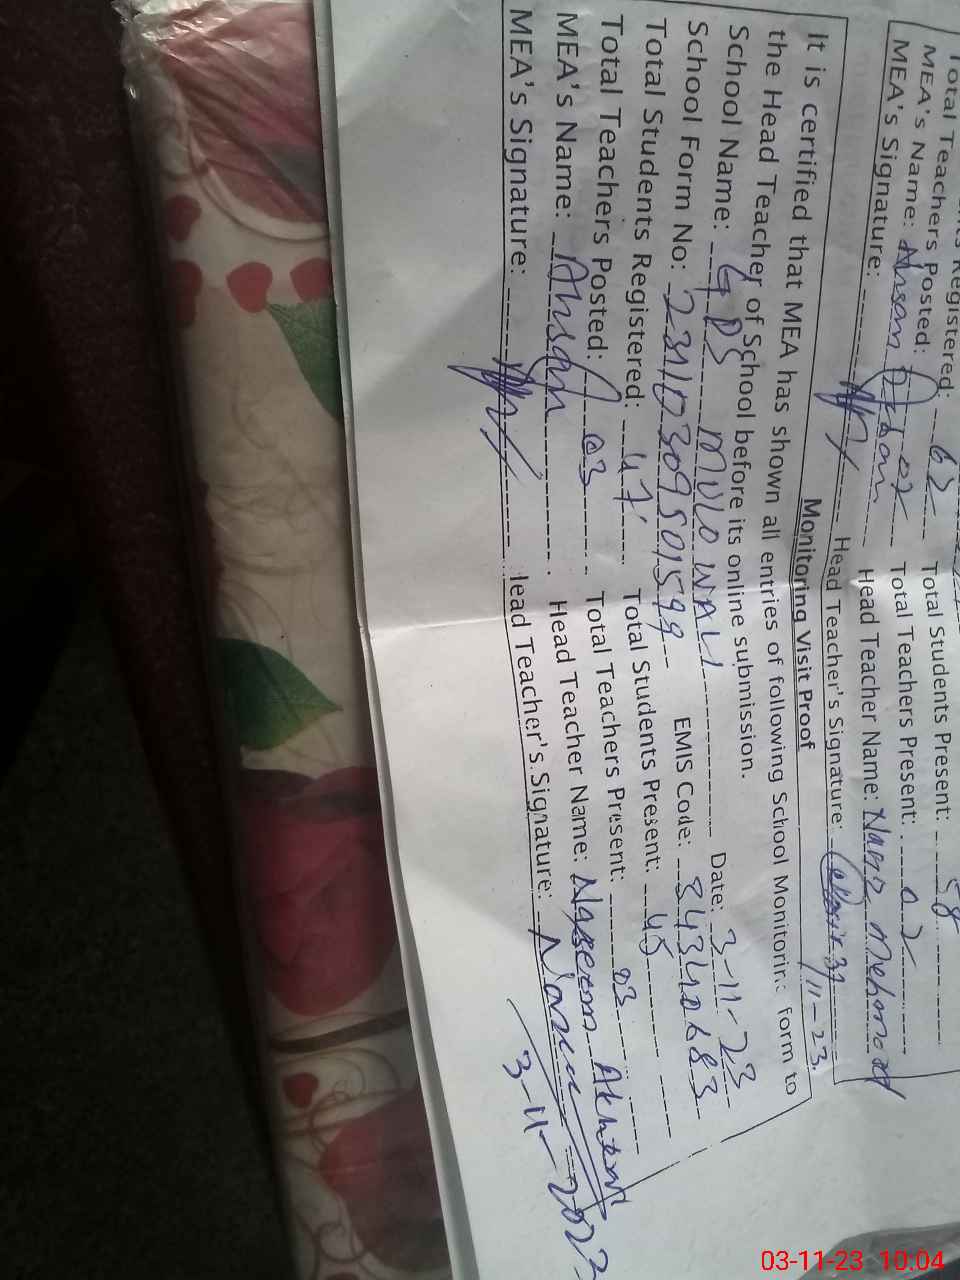 Total Students Present: 58
Total Teachers Posted: 02 Total Teachers Present: 02
MEA's Name: Ahsan Head Teacher Name: Mehmood
MEA's Signature: Head Teacher's Signature:
Monitoring Visit Proof
It is certified that MEA has shown all entries of following School Monitoring form to
the Head Teacher of School before its online submission.
School Name: GPS Date: 3-11-23
School Form No: EMIS Code: 34340683
Total Students Registered: 47 Total Students Present: 45
Total Teachers Posted: 03 Total Teachers Present: 03
MEA's Name: Ahsan Head Teacher Name: Naseem Akhtar
MEA's Signature: Head Teacher's Signature:
3-11-2023
03-11-23 10:04